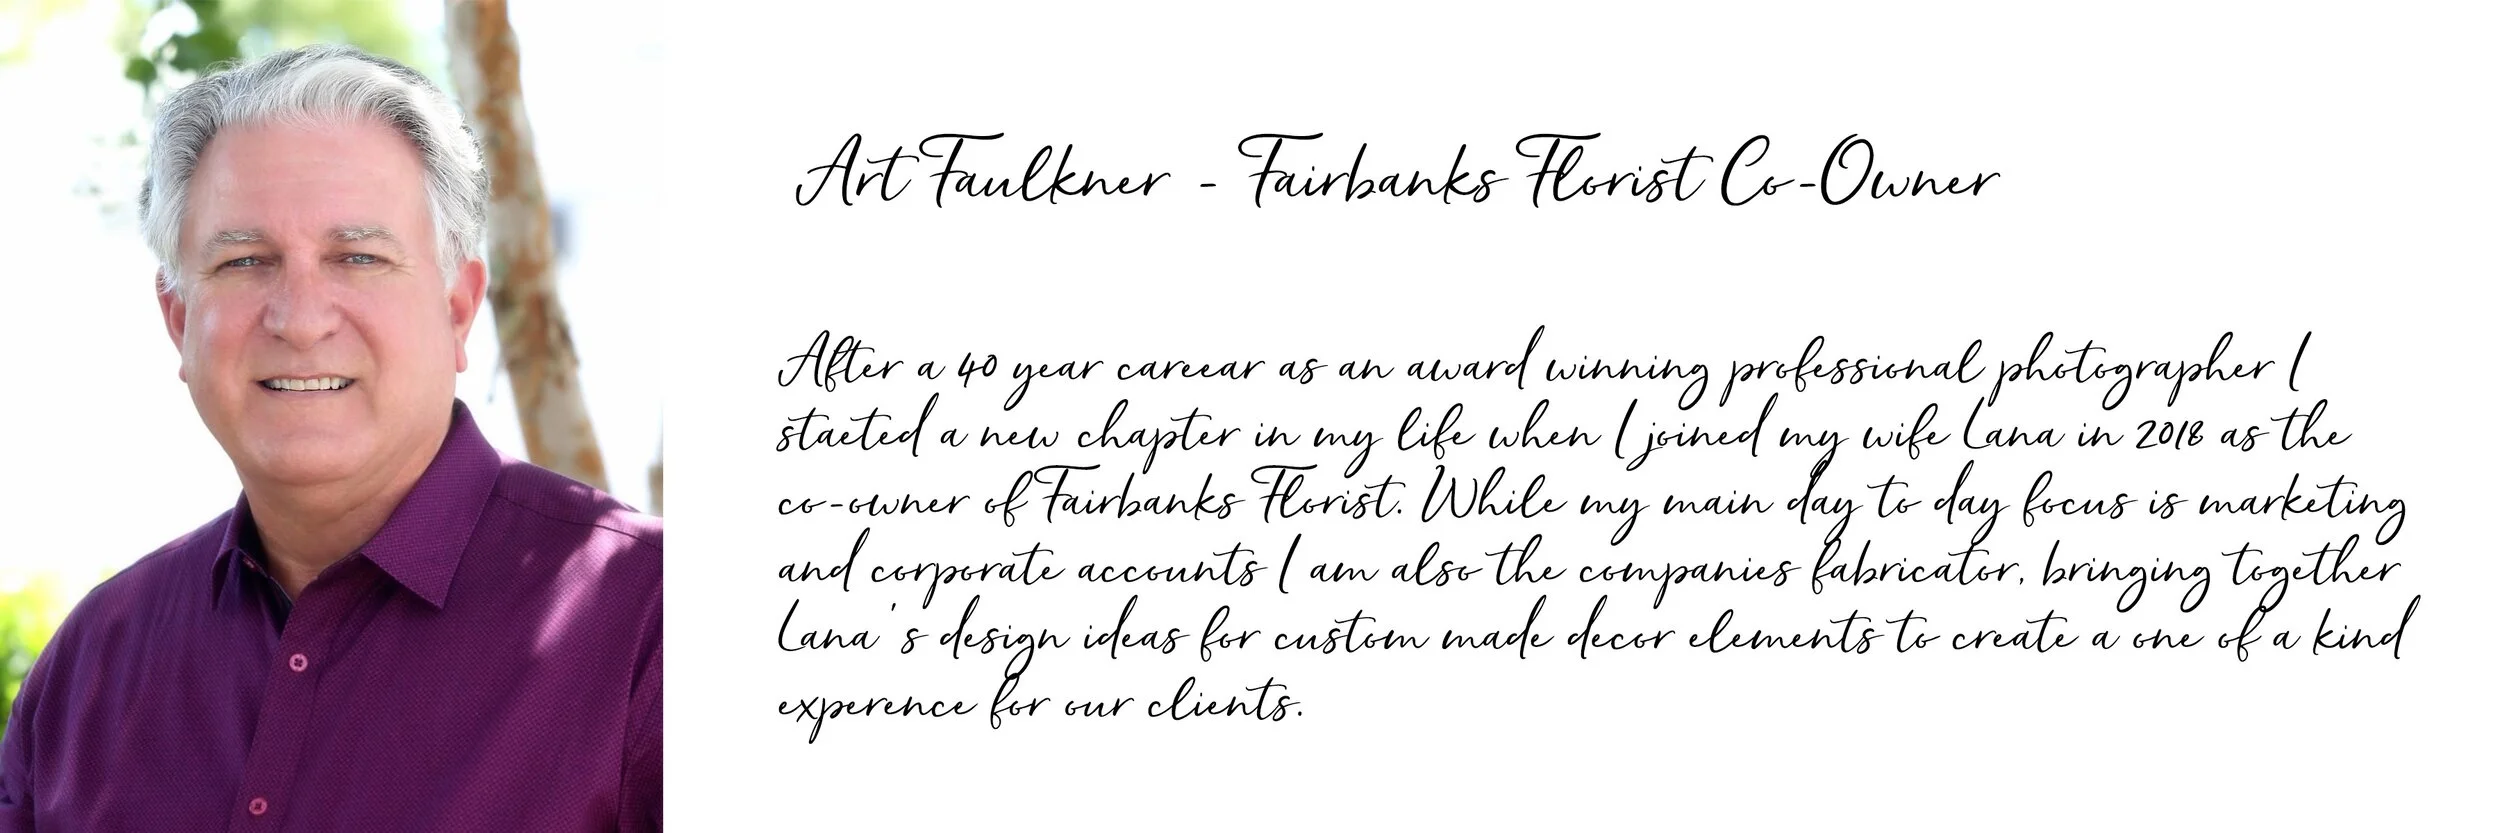 Art Faulkner - Fairbanks Florist Co-Owner
After a 40 year careear as an award winning professional photographer I
staeted a new chapter in my life when I joined my wife Lana in 2018 as the
co-owner of Fairbanks Florist. While my main day to day focus is marketing
and corporate accounts I am also the companies fabricator, bringing together
Lana's design ideas for custom made decor elements to create a one of a kind
experence for our clients.